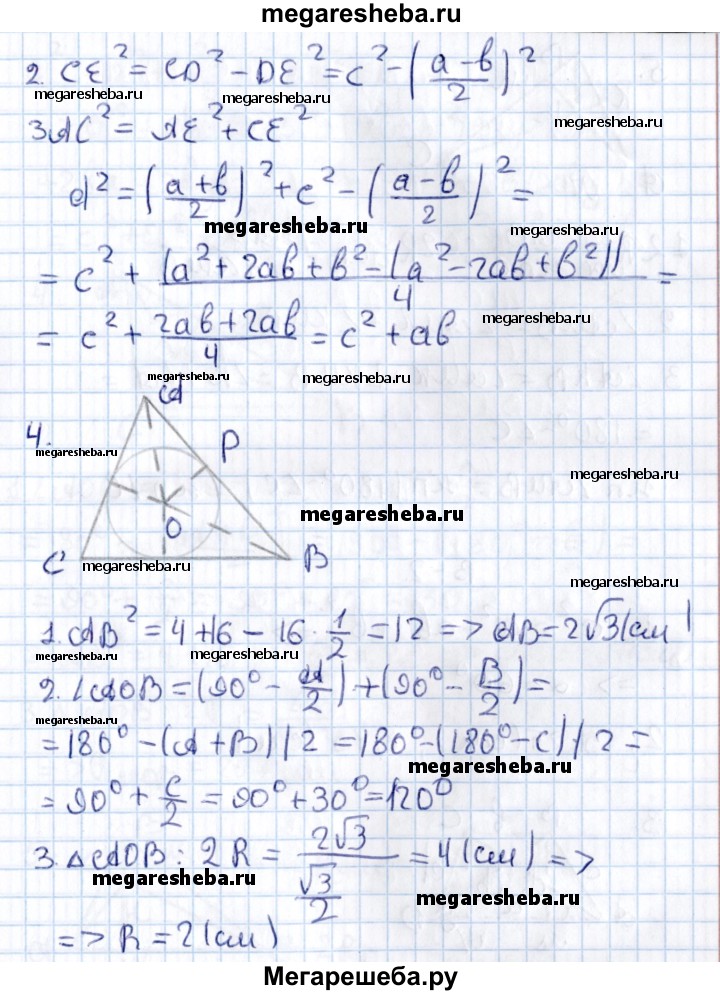 megaresheba.ru
2. CE² = CD² - DE² = c² - ((a-b)/2)²
megaresheba.ru megaresheba.ru
3. AC² = AE² + CE²
megaresheba.ru
d² = ((a+b)/2)² + c² - ((a-b)/2)² =
megaresheba.ru
megaresheba.ru
= c² + (a² + 2ab + b² - (a² - 2ab + b²))/4 =
= c² + (2ab + 2ab)/4 = c² + ab
megaresheba.ru
megaresheba.ru megaresheba.ru
A
4.
P
megaresheba.ru
megaresheba.ru
megaresheba.ru
O
C B
megaresheba.ru
megaresheba.ru
1. AB² = 4 + 16 - 16 · 1/2 = 12 => AB = 2√3 (см)
megaresheba.ru megaresheba.ru
2. ∠AOB = (90° - A/2) + (90° - B/2) =
megaresheba.ru
= 180° - (A + B) / 2 = 180° - (180° - C) / 2 =
megaresheba.ru
= 90° + C/2 = 90° + 30° = 120°
3. △AOB : 2R = 2√3/(√3/2) = 4 (см) =>
megaresheba.ru megaresheba.ru
=> R = 2 (см)
Мегарешеба.ру